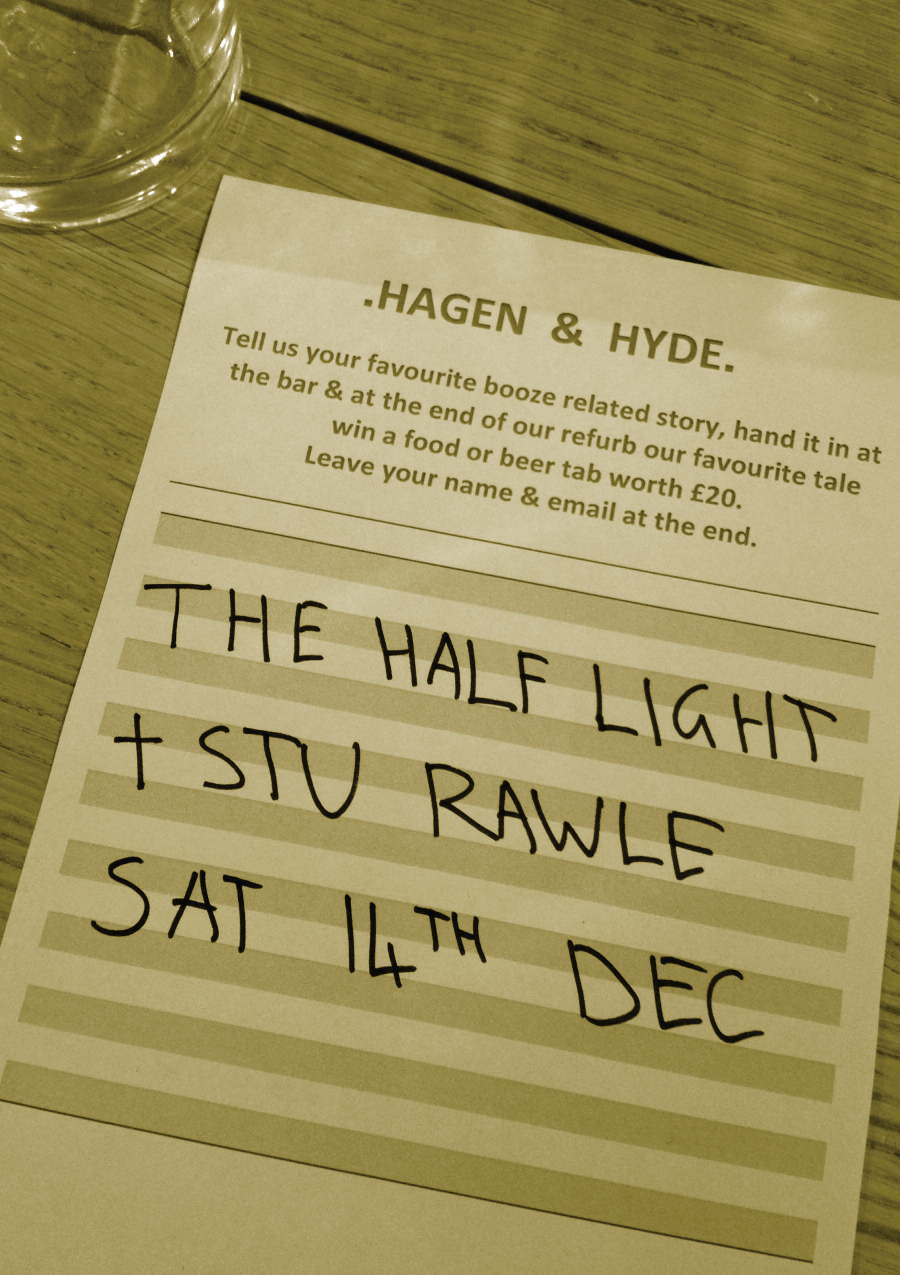 .HAGEN & HYDE.
Tell us your favourite booze related story, hand it in at
the bar & at the end of our refurb our favourite tale
win a food or beer tab worth £20.
Leave your name & email at the end.
THE HALF LIGHT
+ STU RAWLE
SAT 14TH DEC